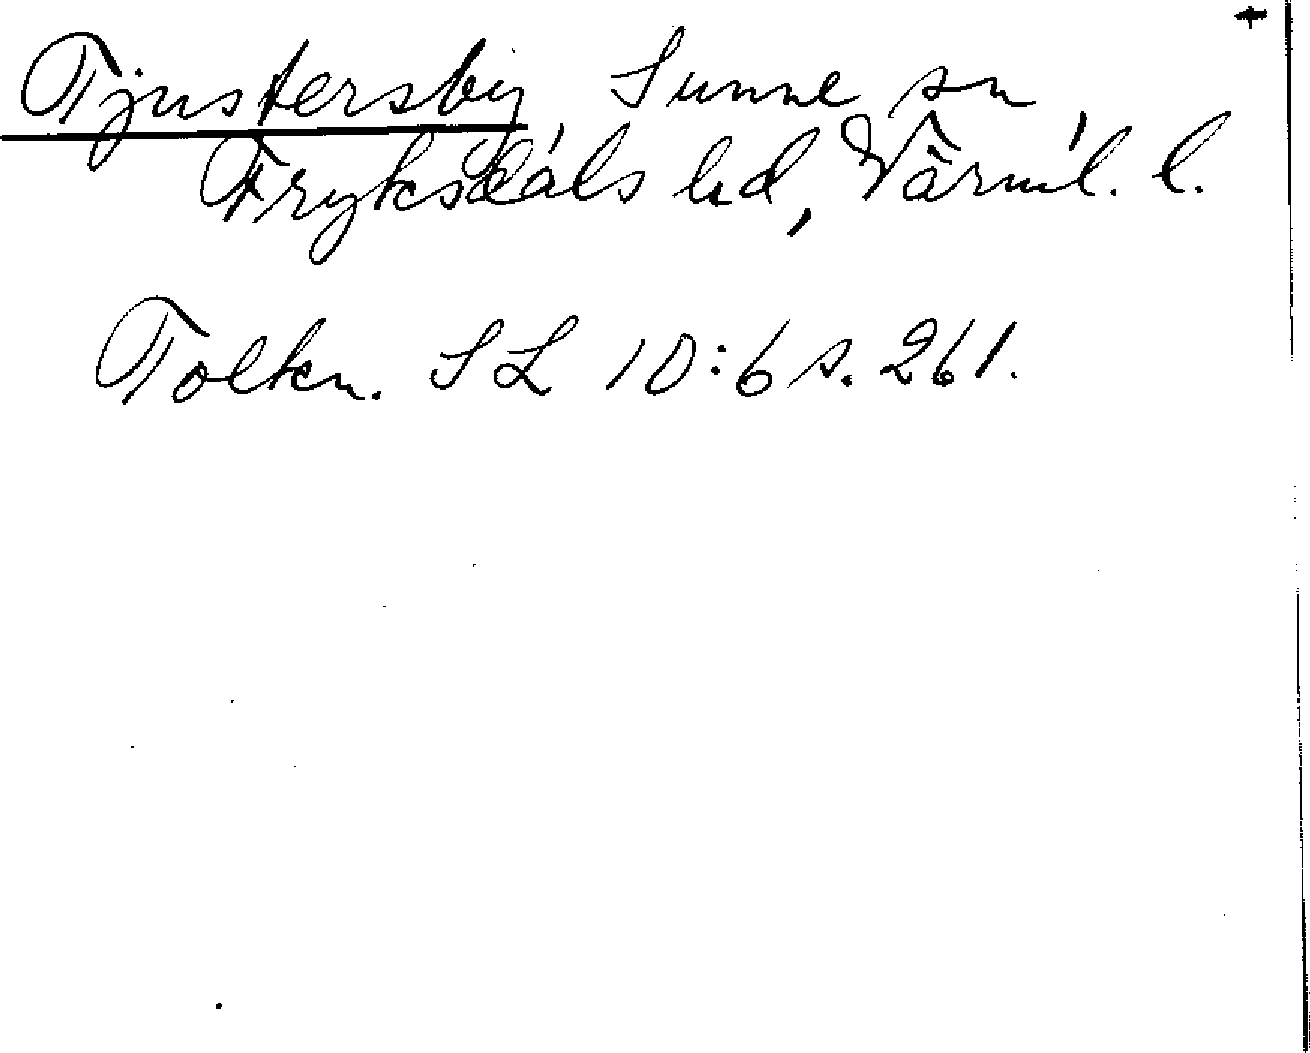 +
Tjustersby Sunne sn
Fryksdals hd, Värml. l.
Tolkn. SL 10:6 s. 261.